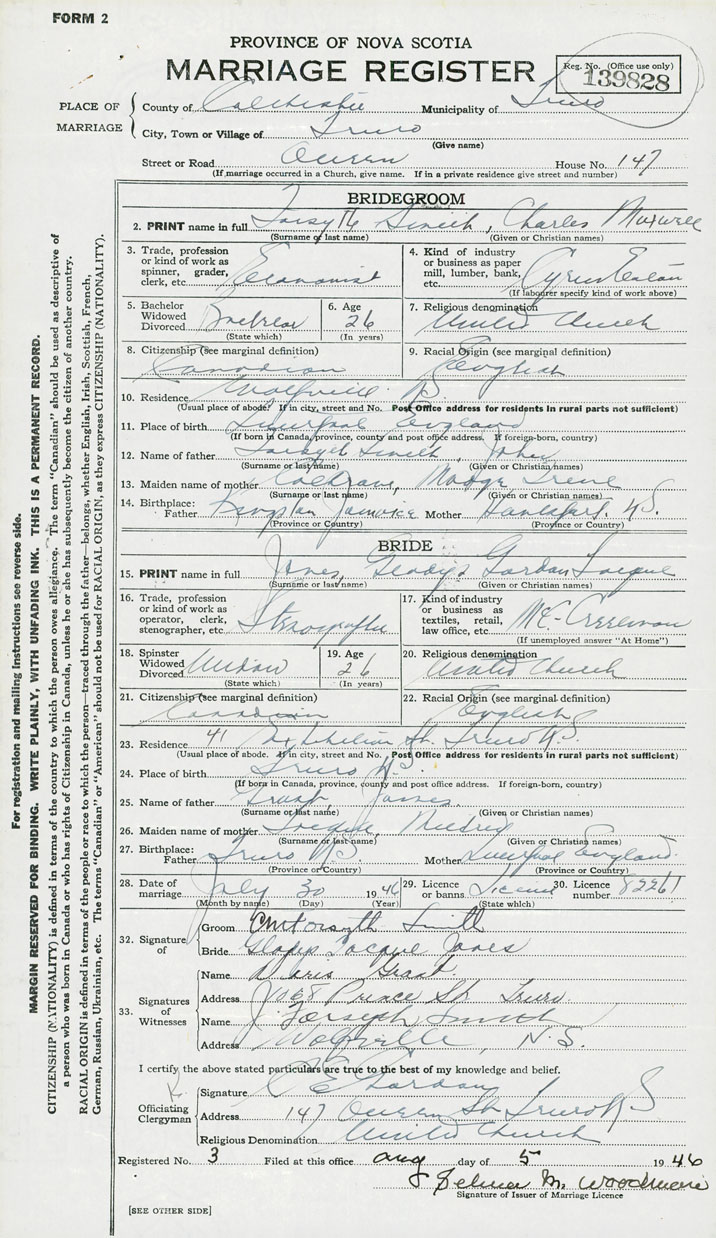 FORM 2
PROVINCE OF NOVA SCOTIA
MARRIAGE REGISTER
Reg. No. (Office use only)
139828
PLACE OF MARRIAGE
County of Colchester Municipality of Truro
City, Town or Village of Truro
(Give name)
Street or Road Queen House No. 147
(If marriage occurred in a Church, give name. If in a private residence give street and number)
BRIDEGROOM
2. PRINT name in full Forsyth Smith, Charles Maxwell
(Surname or last name) (Given or Christian names)
3. Trade, profession or kind of work as spinner, grader, clerk, etc. Economist
4. Kind of industry or business as paper mill, lumber, bank, etc. Cyrus Eaton
(If labourer specify kind of work above)
5. Bachelor Widowed Divorced Bachelor
(State which)
6. Age 26
(In years)
7. Religious denomination United Church
8. Citizenship (see marginal definition) Canadian
9. Racial Origin (see marginal definition) English
10. Residence Wolfville
(Usual place of abode. If in city, street and No. Post Office address for residents in rural parts not sufficient)
11. Place of birth Liverpool England
(If born in Canada, province, county and post office address. If foreign-born, country)
12. Name of father Forsyth Smith, John
(Surname or last name) (Given or Christian names)
13. Maiden name of mother Madge Irene
(Surname or last name) (Given or Christian names)
14. Birthplace: Father Kingston Jamaica Mother Hantsport N.S.
(Province or Country) (Province or Country)
BRIDE
15. PRINT name in full Jones, Gladys Gordon Jacque
(Surname or last name) (Given or Christian names)
16. Trade, profession or kind of work as operator, clerk, stenographer, etc. Stenographer
17. Kind of industry or business as textiles, retail, law office, etc.
(If unemployed answer "At Home")
18. Spinster Widowed Divorced Widow
(State which)
19. Age 26
(In years)
20. Religious denomination United Church
21. Citizenship (see marginal definition) Canadian
22. Racial Origin (see marginal definition) English
23. Residence 41 St. Truro N.S.
(Usual place of abode. If in city, street and No. Post Office address for residents in rural parts not sufficient)
24. Place of birth Truro N.S.
(If born in Canada, province, county and post office address. If foreign-born, country)
25. Name of father James
(Surname or last name) (Given or Christian names)
26. Maiden name of mother Mildred
(Surname or last name) (Given or Christian names)
27. Birthplace: Father Truro N.S. Mother Liverpool England
(Province or Country) (Province or Country)
28. Date of marriage July 30 1946
(Month by name) (Day) (Year)
29. Licence or banns License
(State which)
30. Licence number 82261
32. Signature of
Groom CM Forsyth Smith
Bride Gladys Jacque Jones
33. Signatures of Witnesses
Name Doris Grant
Address Prince St. Truro
Name J Forsyth Smith
Address Wolfville, N.S.
I certify the above stated particulars are true to the best of my knowledge and belief.
Officiating Clergyman
Signature C E Gordon
Address 147 Queen St. Truro N S
Religious Denomination United Church
Registered No. 3 Filed at this office Aug day of 5 1946
Selma M. Woodmere
Signature of Issuer of Marriage Licence
[SEE OTHER SIDE]
For registration and mailing instructions see reverse side.
MARGIN RESERVED FOR BINDING. WRITE PLAINLY, WITH UNFADING INK. THIS IS A PERMANENT RECORD.
CITIZENSHIP (NATIONALITY) is defined in terms of the country to which the person owes allegiance. The term "Canadian" should be used as descriptive of
a person who was born in Canada or who has rights of Citizenship in Canada, unless he or she has subsequently become the citizen of another country.
RACIAL ORIGIN is defined in terms of the people or race to which the person—traced through the father—belongs, whether English, Irish, Scottish, French,
German, Russian, Ukrainian, etc. The terms "Canadian" or "American" should not be used for RACIAL ORIGIN, as they express CITIZENSHIP (NATIONALITY).